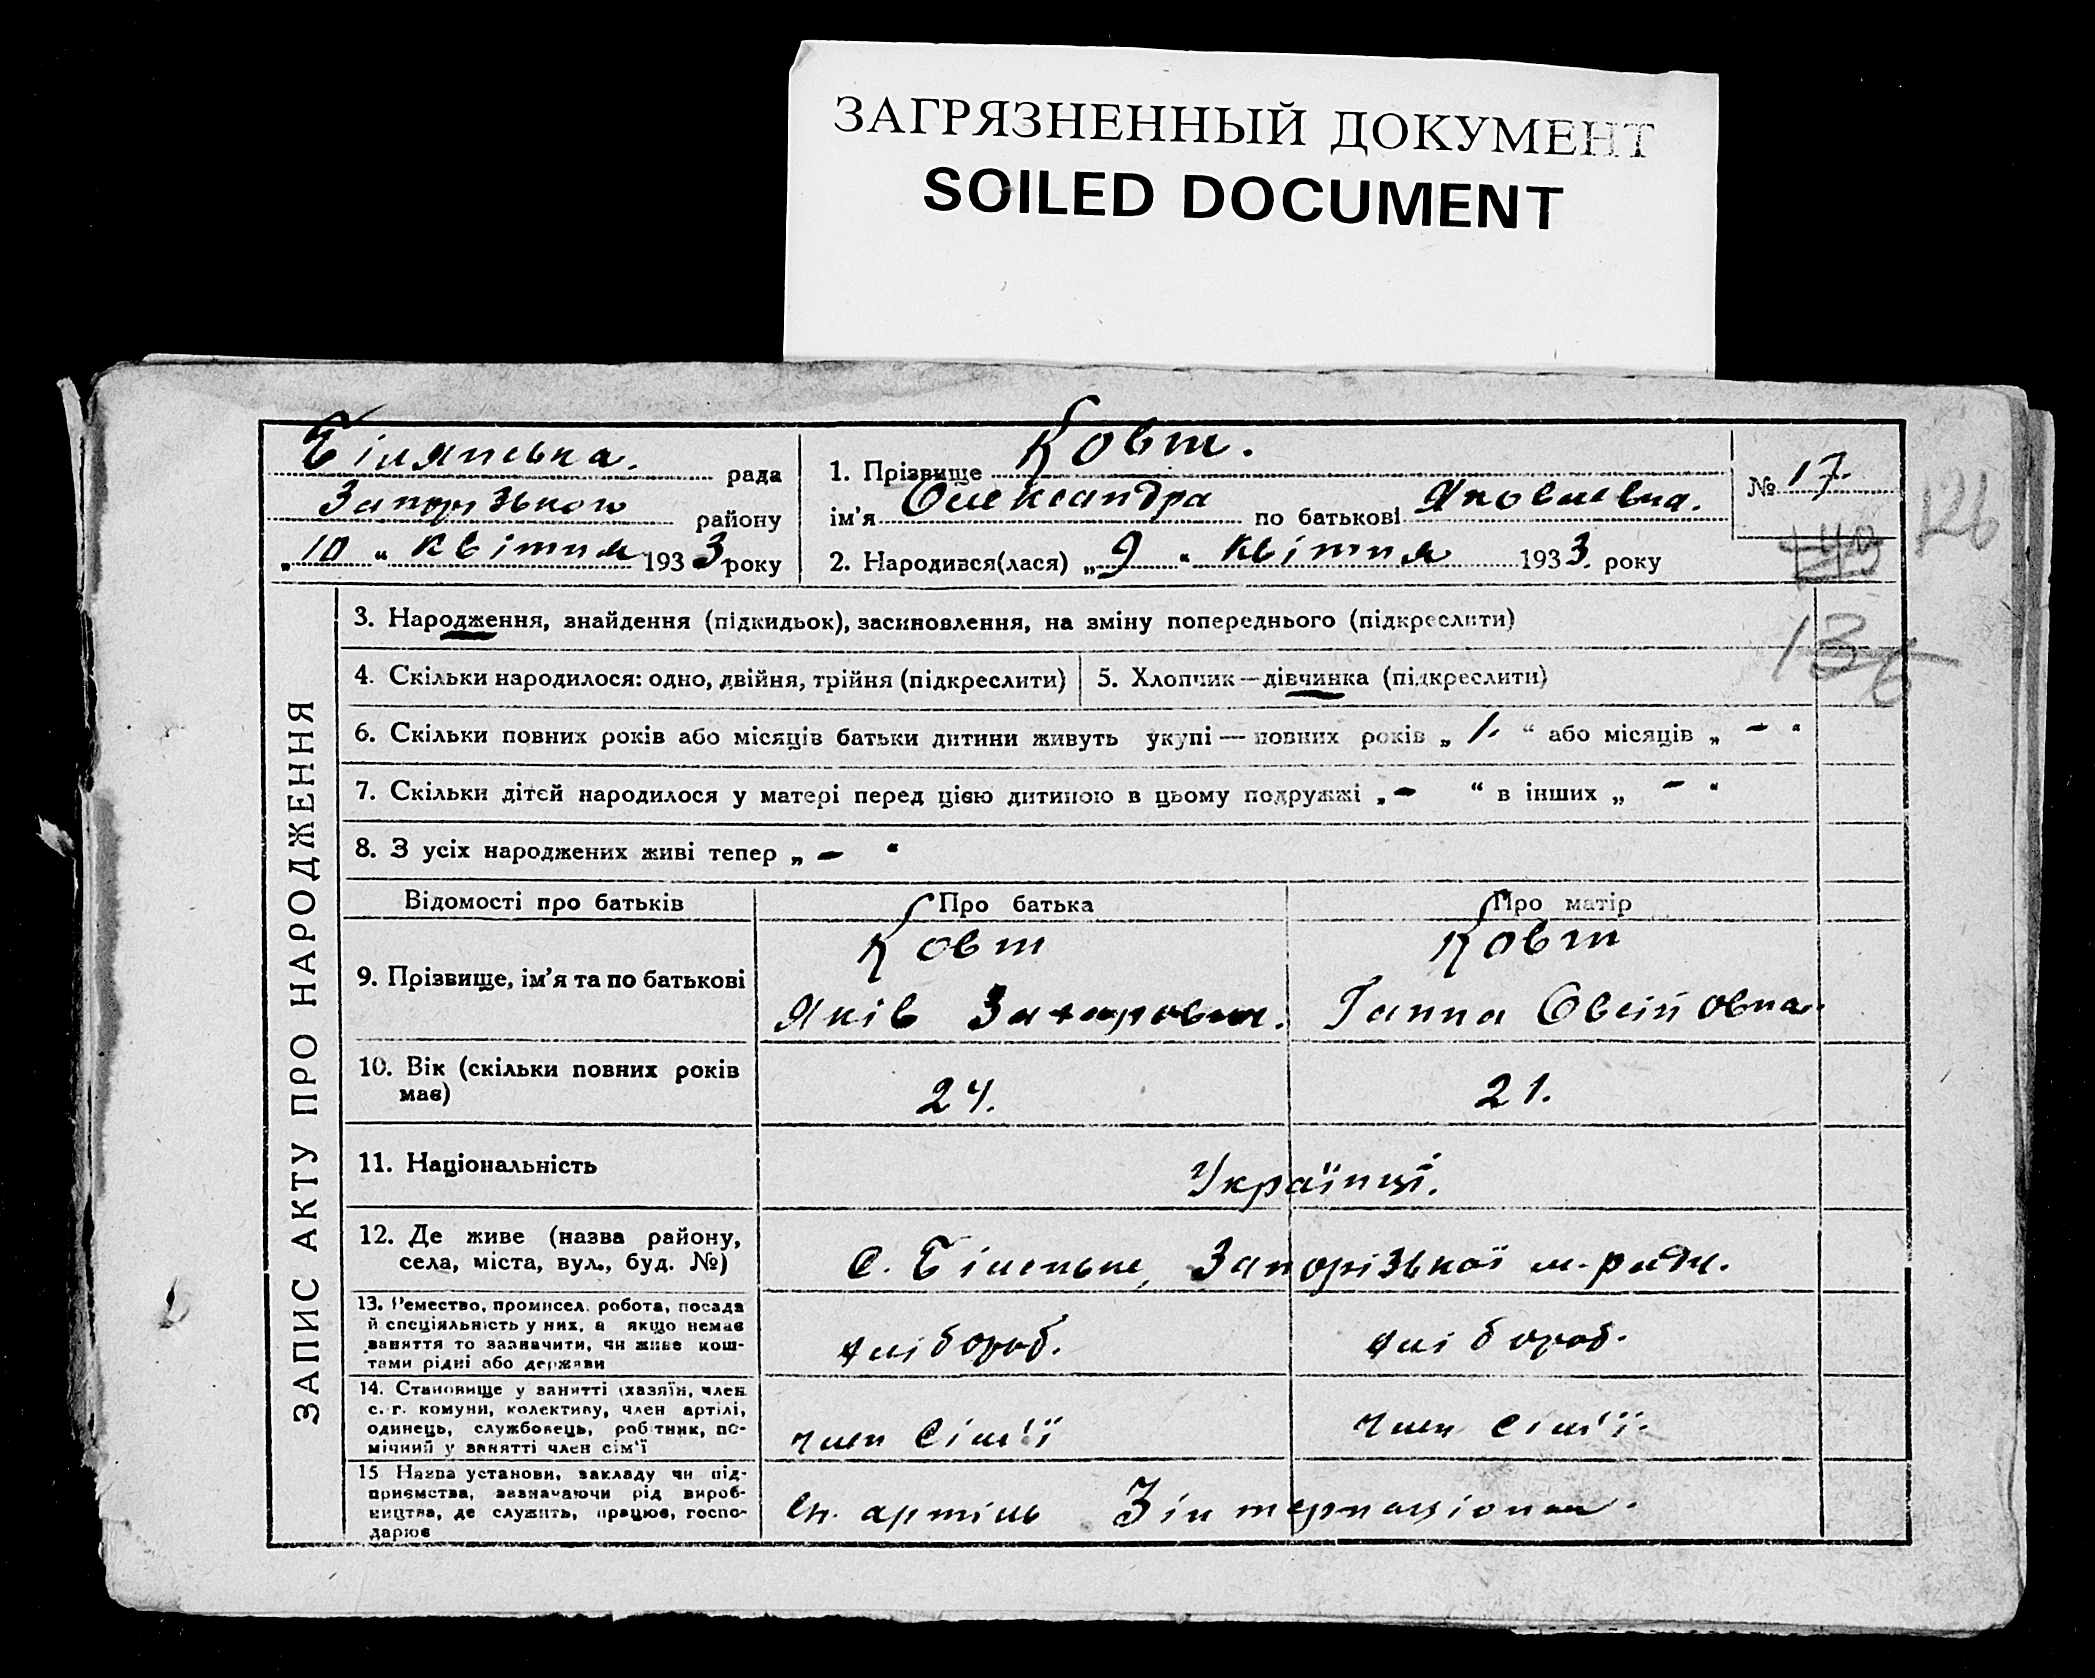 ЗАГРЯЗНЕННЫЙ ДОКУМЕНТ
SOILED DOCUMENT
рада
Запорізького району
„10“ квітня 1933 року
1. Прізвище Ковт.
ім'я Олександра по батькові Яковлевна.
2. Народився(лася) „9“ квітня 1933 року
№ 17.
126
136
ЗАПИС АКТУ ПРО НАРОДЖЕННЯ
3. Народження, знайдення (підкидьок), засиновлення, на зміну попереднього (підкреслити)
4. Скільки народилося: одно, двійня, трійня (підкреслити)
5. Хлопчик—дівчинка (підкреслити)
6. Скільки повних років або місяців батьки дитини живуть укупі — повних років „1.“ або місяців „-“
7. Скільки дітєй народилося у матері перед цією дитиною в цьому подружжі „-“ в інших „-“
8. З усіх народжених живі тепер „-“
Відомості про батьків
Про батька
Про матір
9. Прізвище, ім'я та по батькові
Ковт
Яків Захарович.
Ковт
Ганна Овсійовна.
10. Вік (скільки повних років
має)
24.
21.
11. Національність
Українці.
12. Де живе (назва району,
села, міста, вул., буд. №)
с. Біленьке, Запорізької м. ради.
13. Ремество, промисел, робота, посада
й спеціяльність у них, а якщо немає
заняття то зазначити, чи живе кош-
тами рідні або держави
хлібороб.
хлібороб.
14. Становище у занятті (хазяїн, член
с.-г. комуни, колективу, член артілі,
одинець, службовець, робітник, по-
мічний у занятті член сім'ї
член сім'ї
член сім'ї.
15 Назва установи, закладу чи під-
приємства, зазначаючи рід вироб-
ництва, де служить, працює, госпо-
дарює
сп. артіль Інтернаціонал.